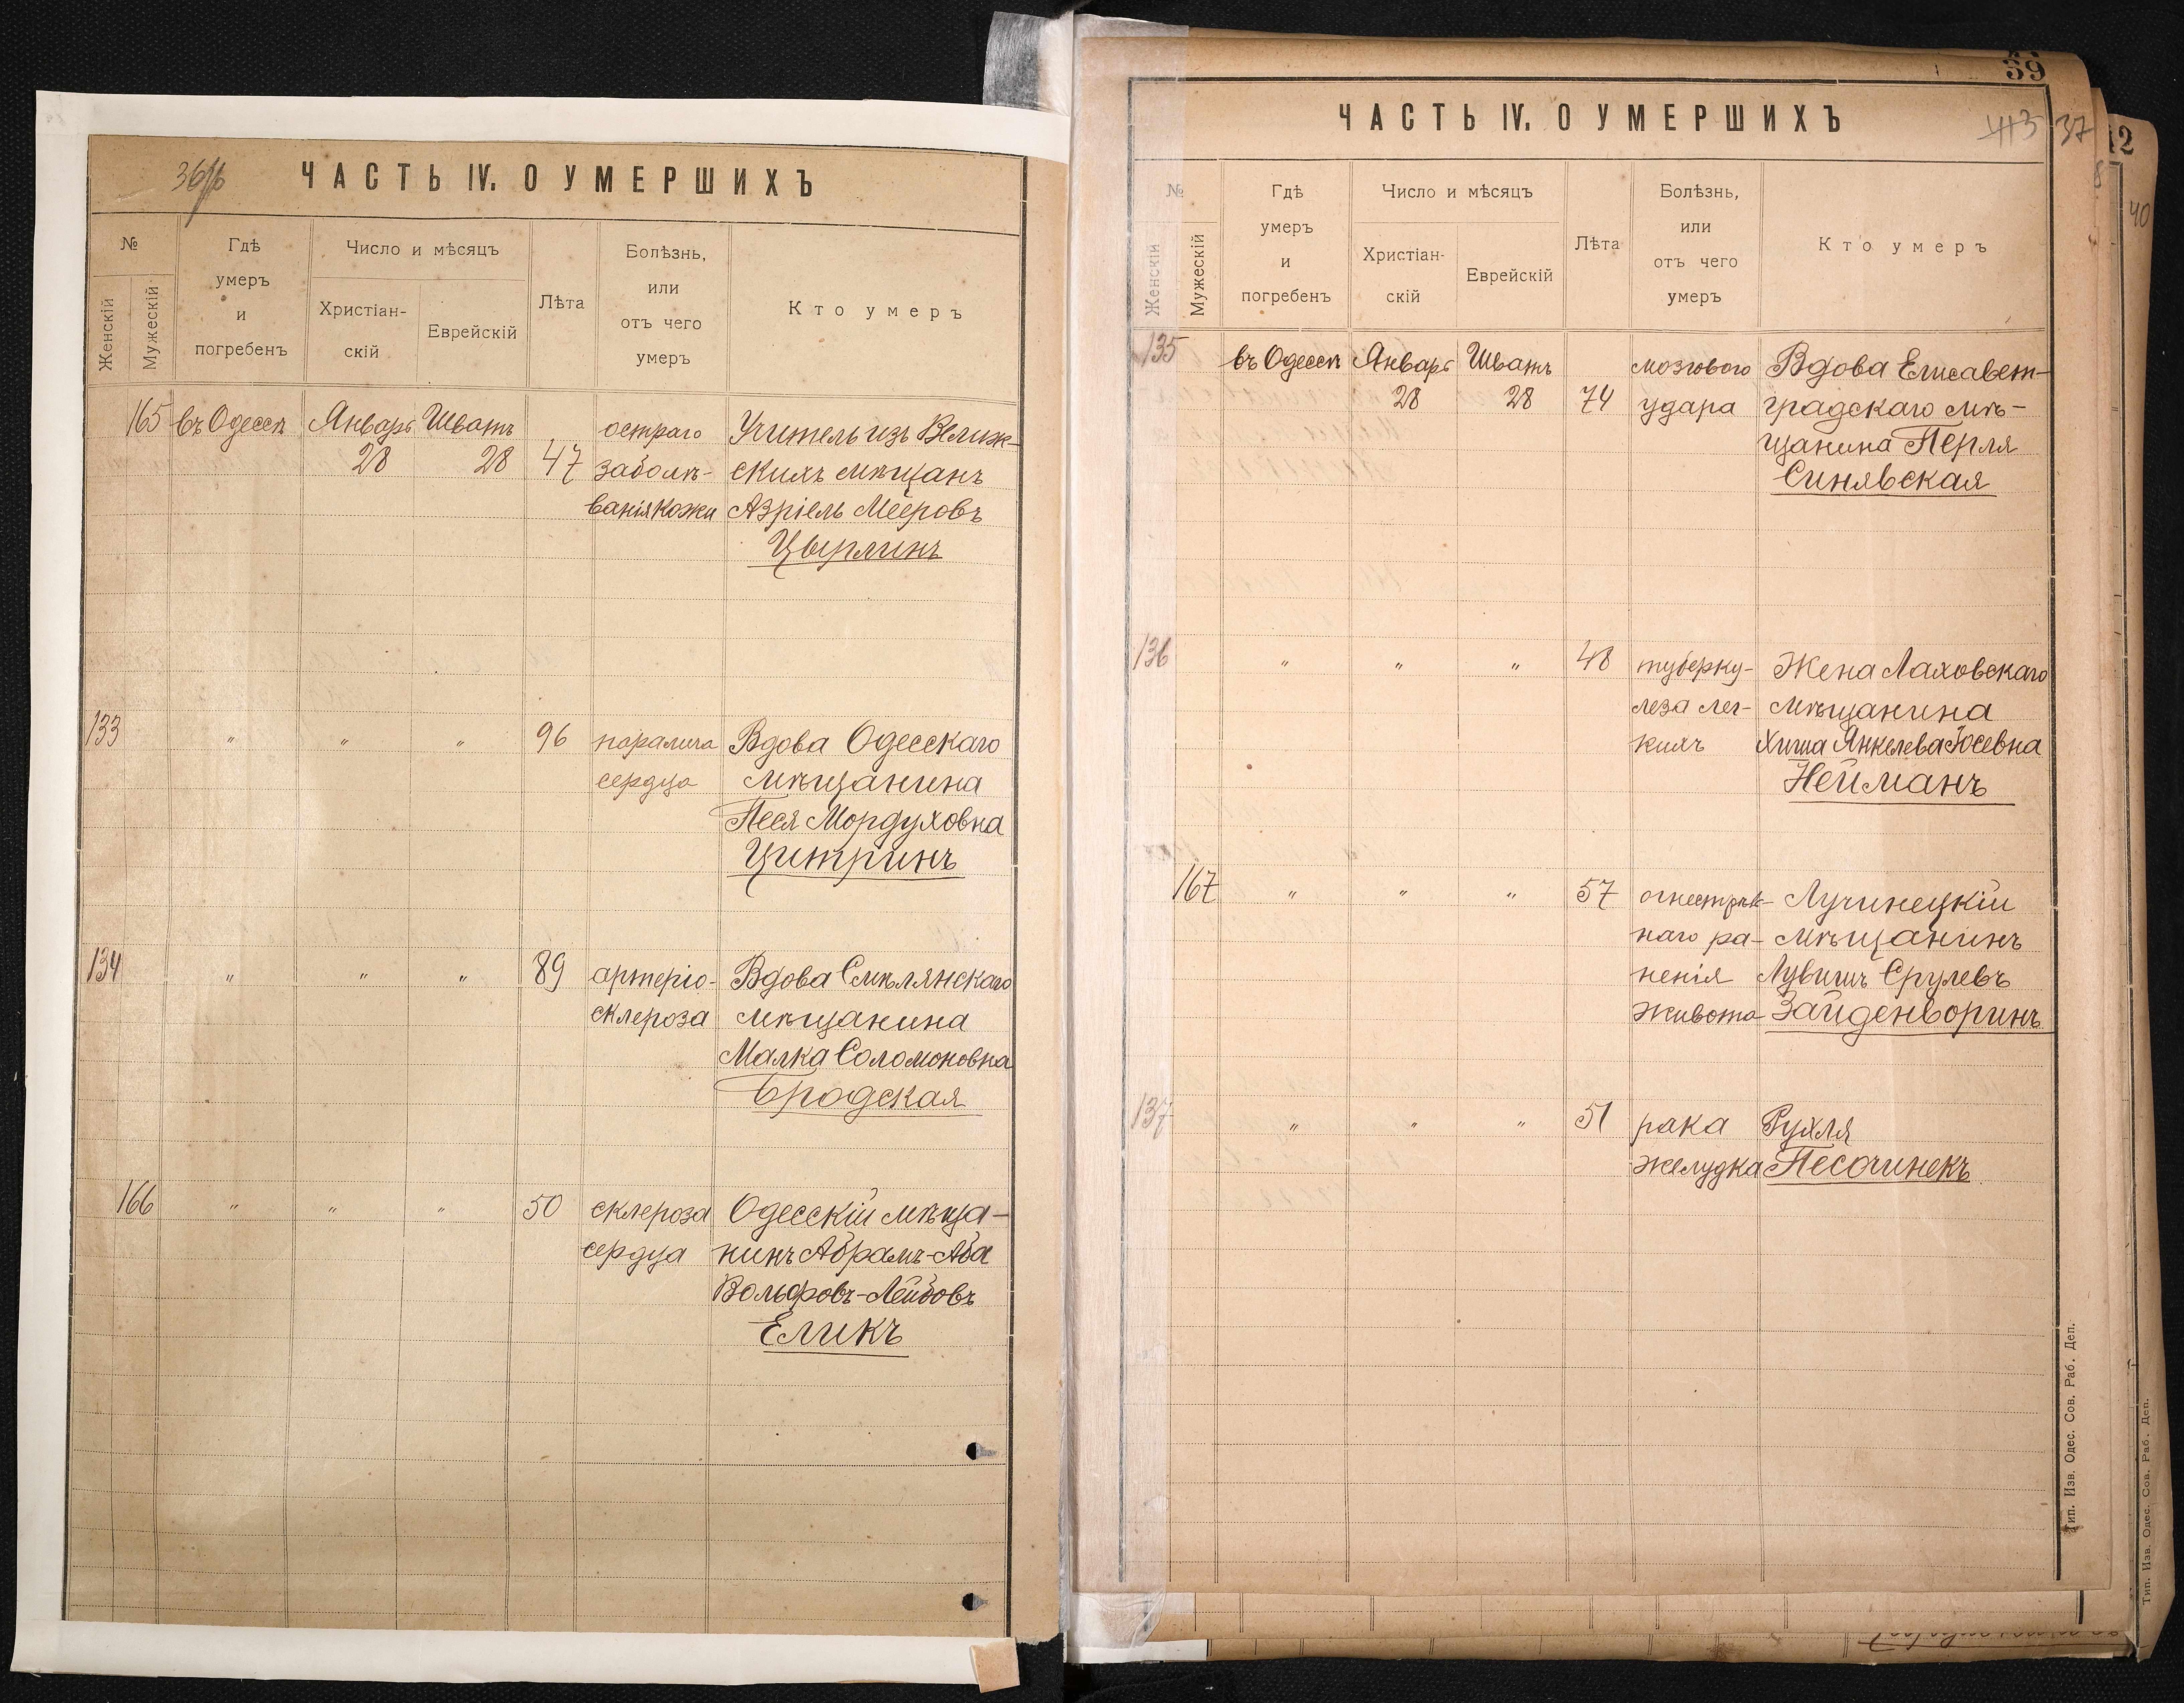 36/б
ЧАСТЬ IV. О УМЕРШИХЪ
№
Женскій
Мужескій
Гдѣ
умеръ
и
погребенъ
Число и мѣсяцъ
Христіан-
скій
Еврейскій
Лѣта
Болѣзнь,
или
отъ чего
умеръ
Кто умеръ
165 въ Одессѣ Январь Шватъ остраго Учитель изъ Велиж-
28 28 47 заболѣ- скихъ мѣщанъ
ванія кожи Азріель Мееровъ
Цырлинъ
133 " " " 96 паралича Вдова Одесскаго
сердца мѣщанина
Песя Мордуховна
Цитринъ
134 " " " 89 артеріо- Вдова Смѣлянскаго
склероза мѣщанина
Малка Соломоновна
Бродская
166 " " " 50 склероза Одесскій мѣща-
сердца нинъ Абрамъ-Аба
Вольфовъ-Лейбовъ
Еликъ
39
ЧАСТЬ IV. О УМЕРШИХЪ
37
№
Женскій
Мужескій
Гдѣ
умеръ
и
погребенъ
Число и мѣсяцъ
Христіан-
скій
Еврейскій
Лѣта
Болѣзнь,
или
отъ чего
умеръ
Кто умеръ
135 въ Одессѣ Январь Шватъ мозгового Вдова Елисавет-
28 28 74 удара градскаго мѣ-
щанина Перля
Синявская
136 " " " 48 туберку- Жена Ляховскаго
леза лег- мѣщанина
кихъ Янкелева-Іосевна
Нейманъ
167 " " " 57 огнестрѣл- Лучинецкій
наго ра- мѣщанинъ
ненія Срулевъ
живота Зайденворинъ
137 " " " 51 рака Рухля
желудка Песочинекъ
Тип. Изв. Одес. Сов. Раб. Деп.
12
8
40
Тип. Изв. Одес. Сов. Раб. Деп.